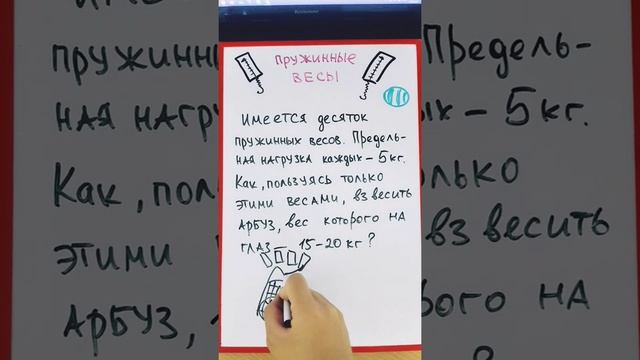 Пружинные
весы
Имеется десяток
пружинных весов. Предель-
ная нагрузка каждых – 5 кг.
Как, пользуясь только
этими весами, взвесить
арбуз, вес которого на
глаз – 15-20 кг?